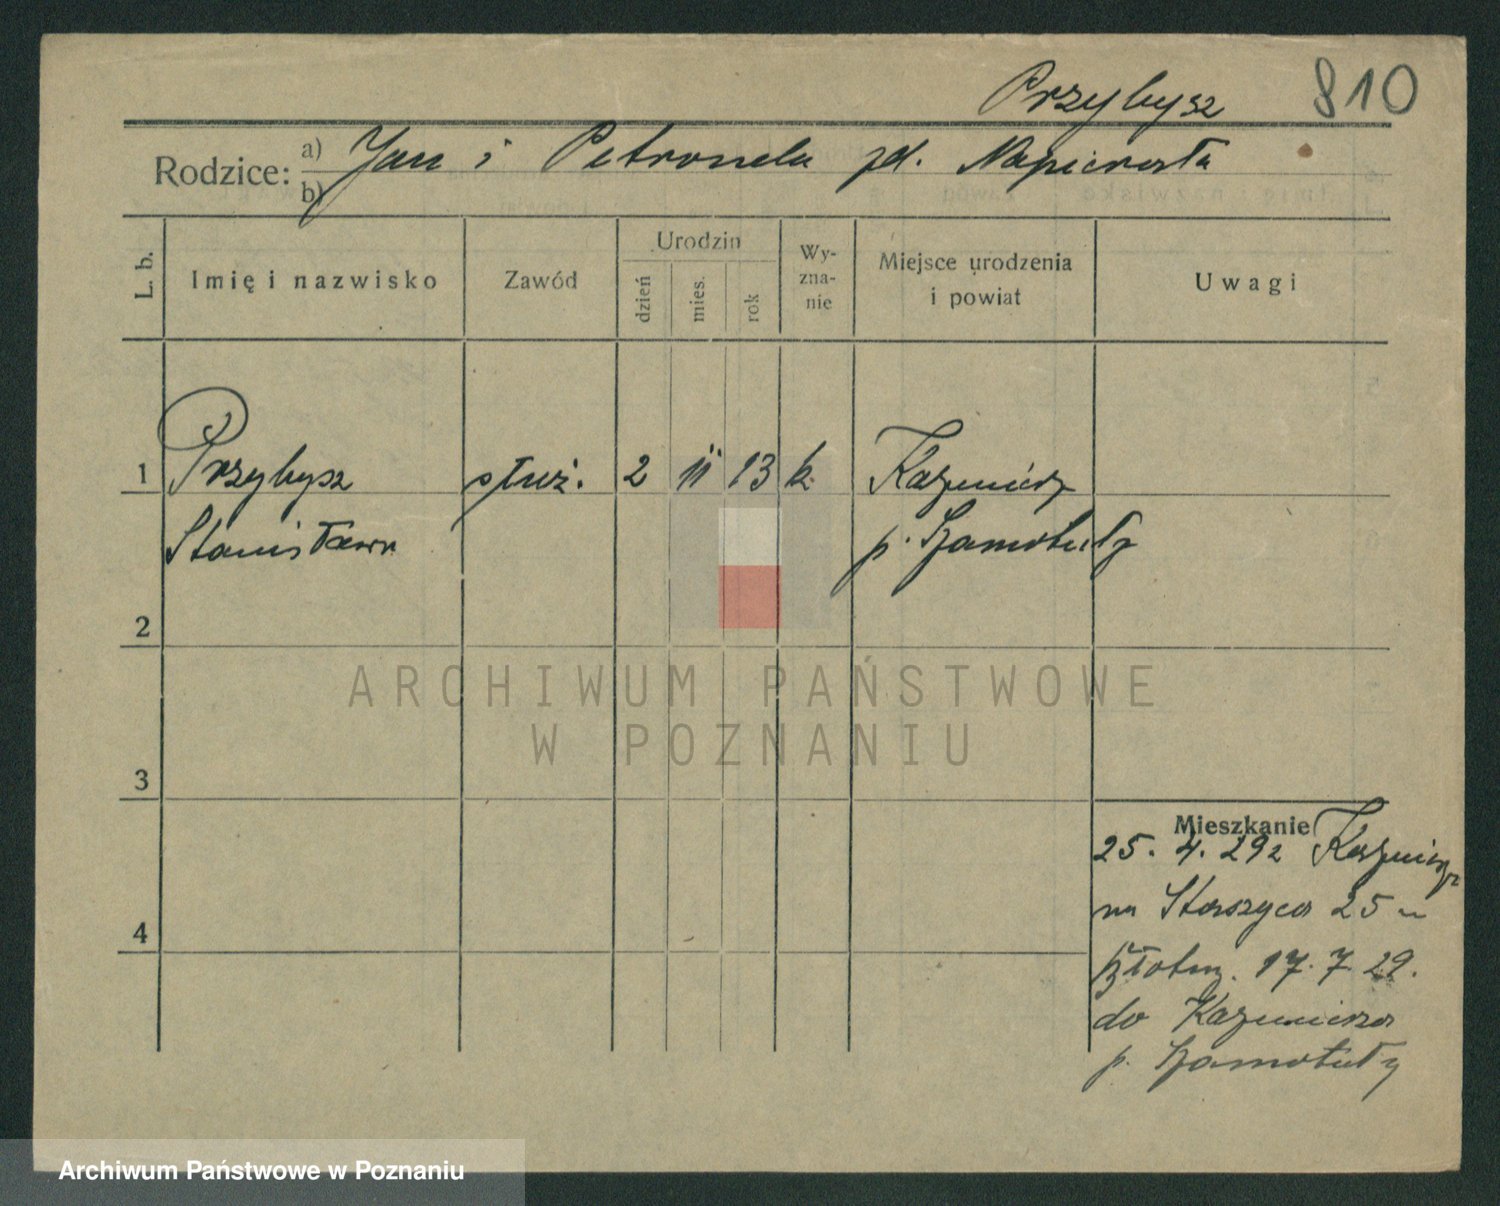 Przybysz 810
Rodzice: a) Jan i Petronela zd. Napierała
b)
L. b. Imię i nazwisko Zawód Urodzin dzień mies. rok Wy-zna-nie Miejsce urodzenia i powiat Uwagi
1 Przybysz służ. 2 11 13 k. Kazmierz
Stanisława p. Szamotuły
2
3
Mieszkanie
25. 4. 29 z Kazmierz
na Staszyca 25
4
17. 7. 29.
do Kazmierza
p. Szamotuły
ARCHIWUM PAŃSTWOWE
W POZNANIU
Archiwum Państwowe w Poznaniu